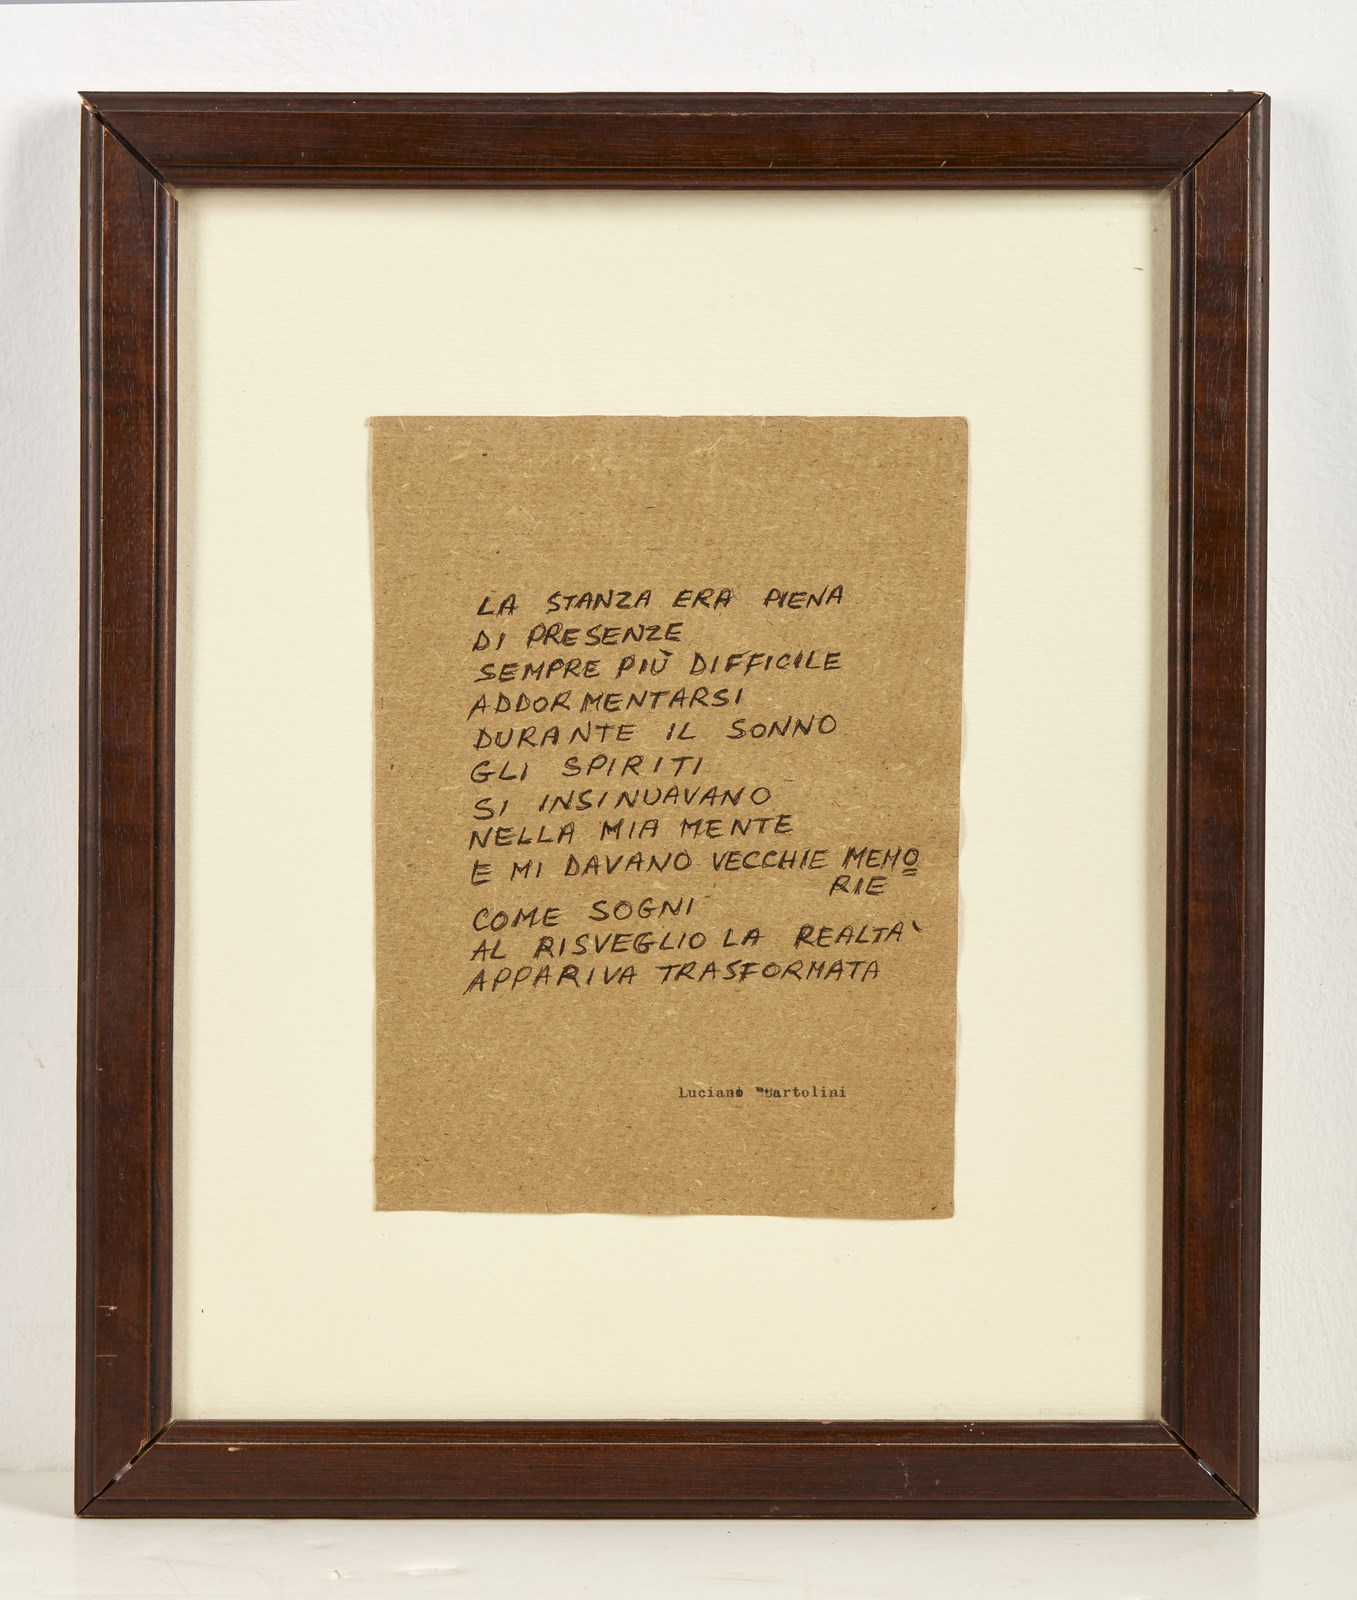 LA STANZA ERA PIENA
DI PRESENZE
SEMPRE PIÙ DIFFICILE
ADDORMENTARSI
DURANTE IL SONNO
GLI SPIRITI
SI INSINUAVANO
NELLA MIA MENTE
E MI DAVANO VECCHIE MEMO
RIE
COME SOGNI
AL RISVEGLIO LA REALTA'
APPARIVA TRASFORMATA
Luciano Bartolini